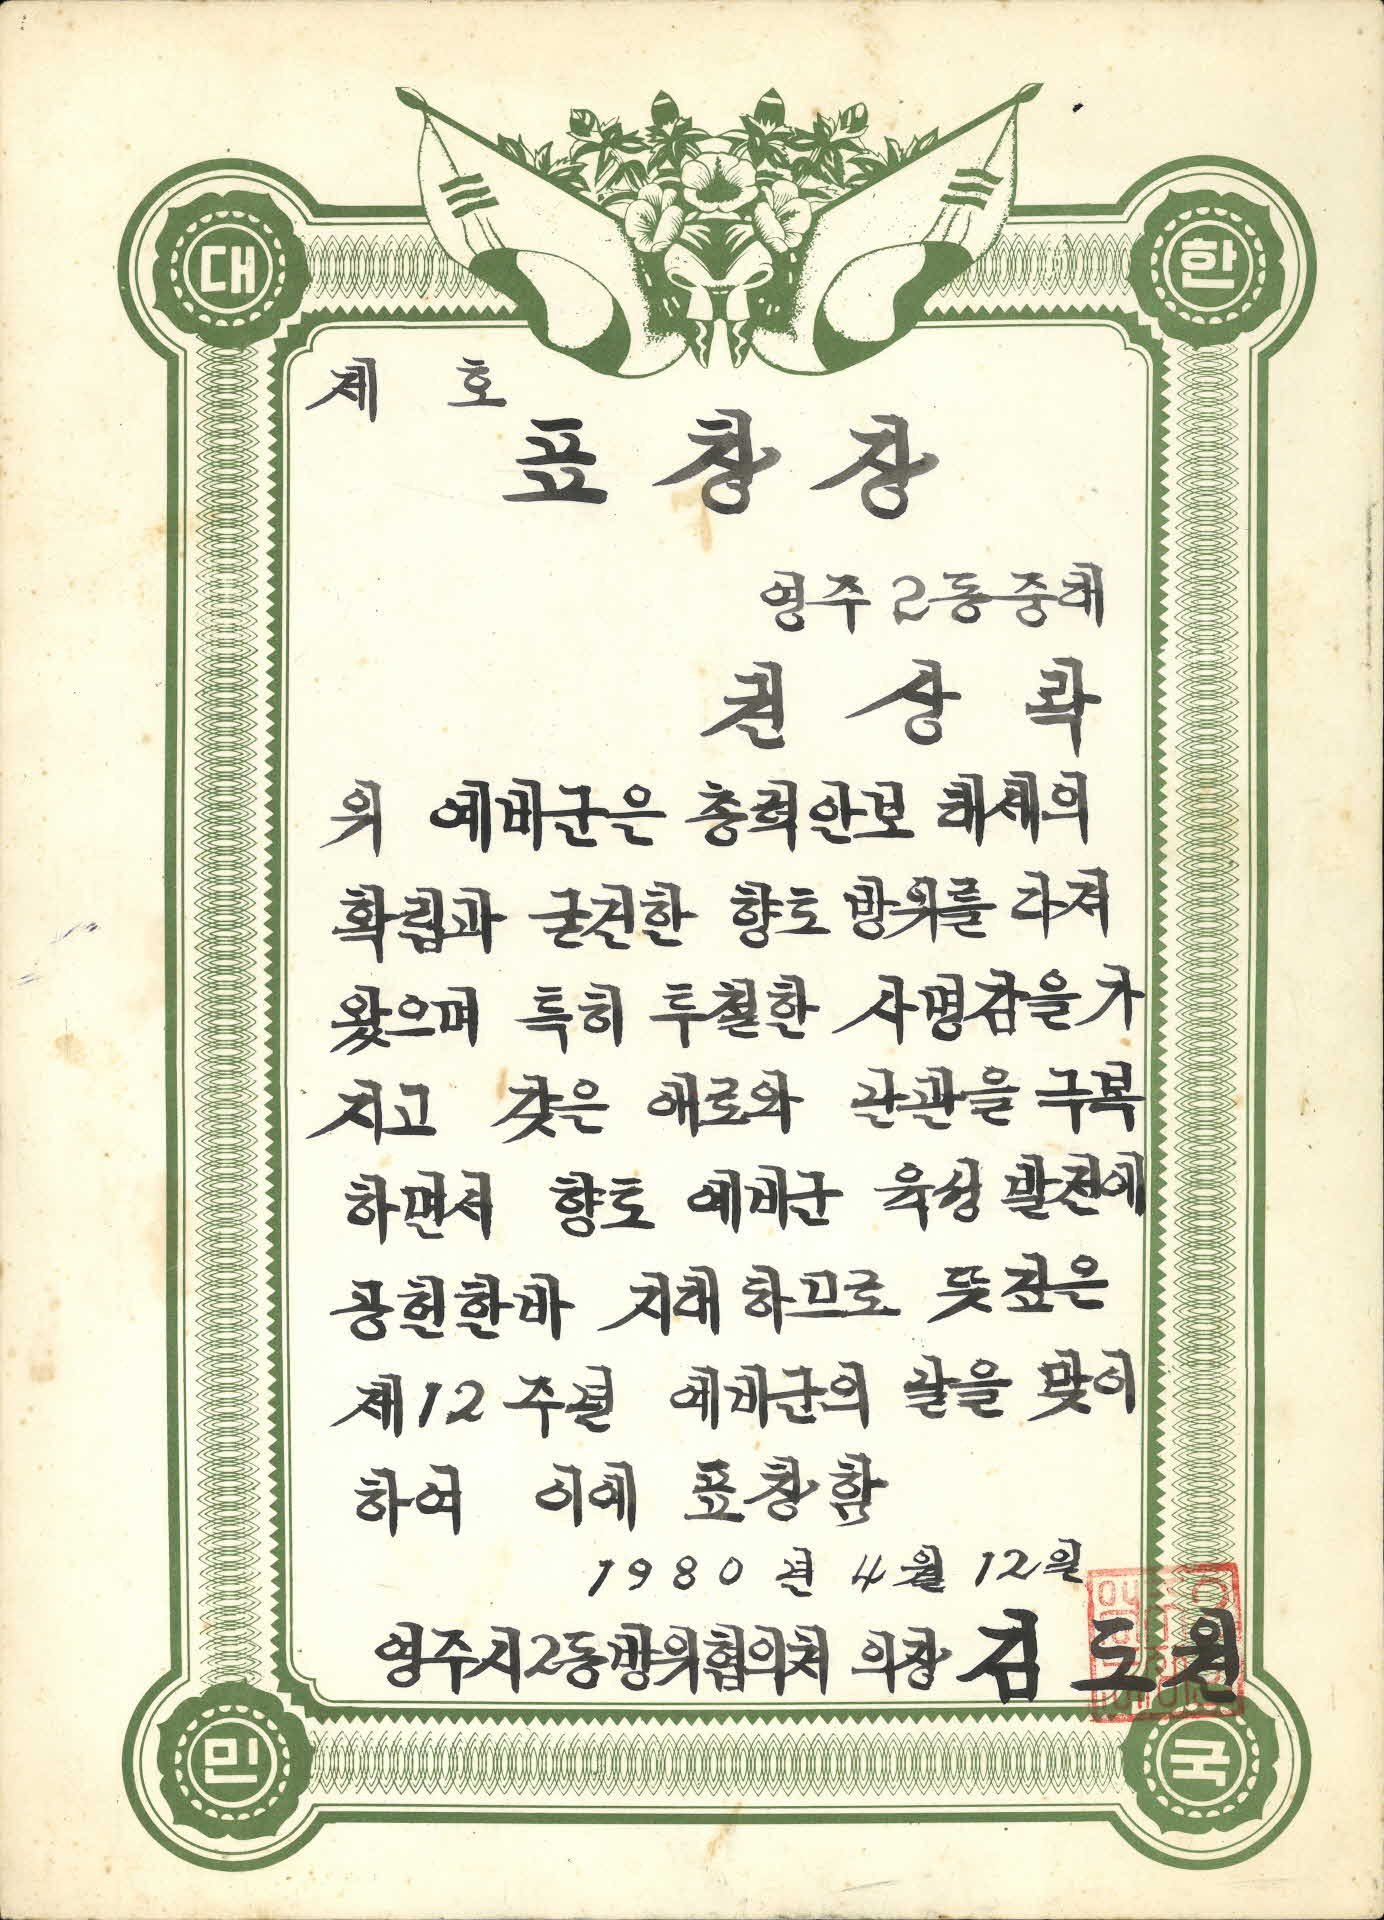 대 한
제 호
표 창 장
영주 2동중대
권 상 락
위 예비군은 총력안보 태세의
확립과 굳건한 향토 방위를 다져
왔으며 특히 투철한 사명감을 가
지고 갖은 애로와 난관을 극복
하면서 향토 예비군 육성 발전에
공헌한바 지대 하므로 뜻깊은
제12 주년 예비군의 날을 맞이
하여 이에 표창함
1980 년 4월 12일
영주시2동방위협의처 의장 김 도 원
민 국